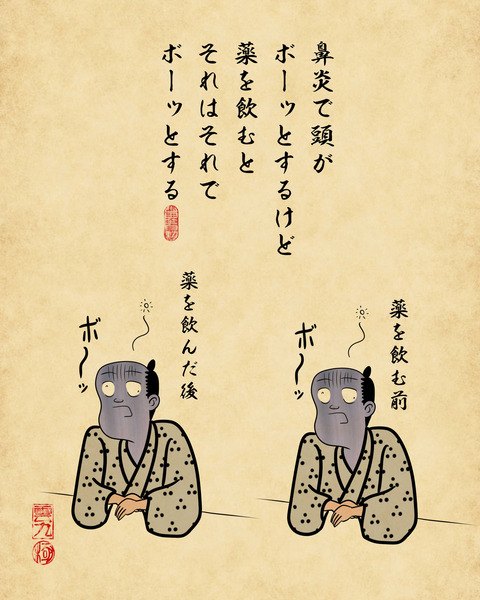 鼻炎で頭が
ボーッとするけど
薬を飲むと
それはそれで
ボーッとする
薬を飲む前
ボ～ッ
薬を飲んだ後
ボ～ッ